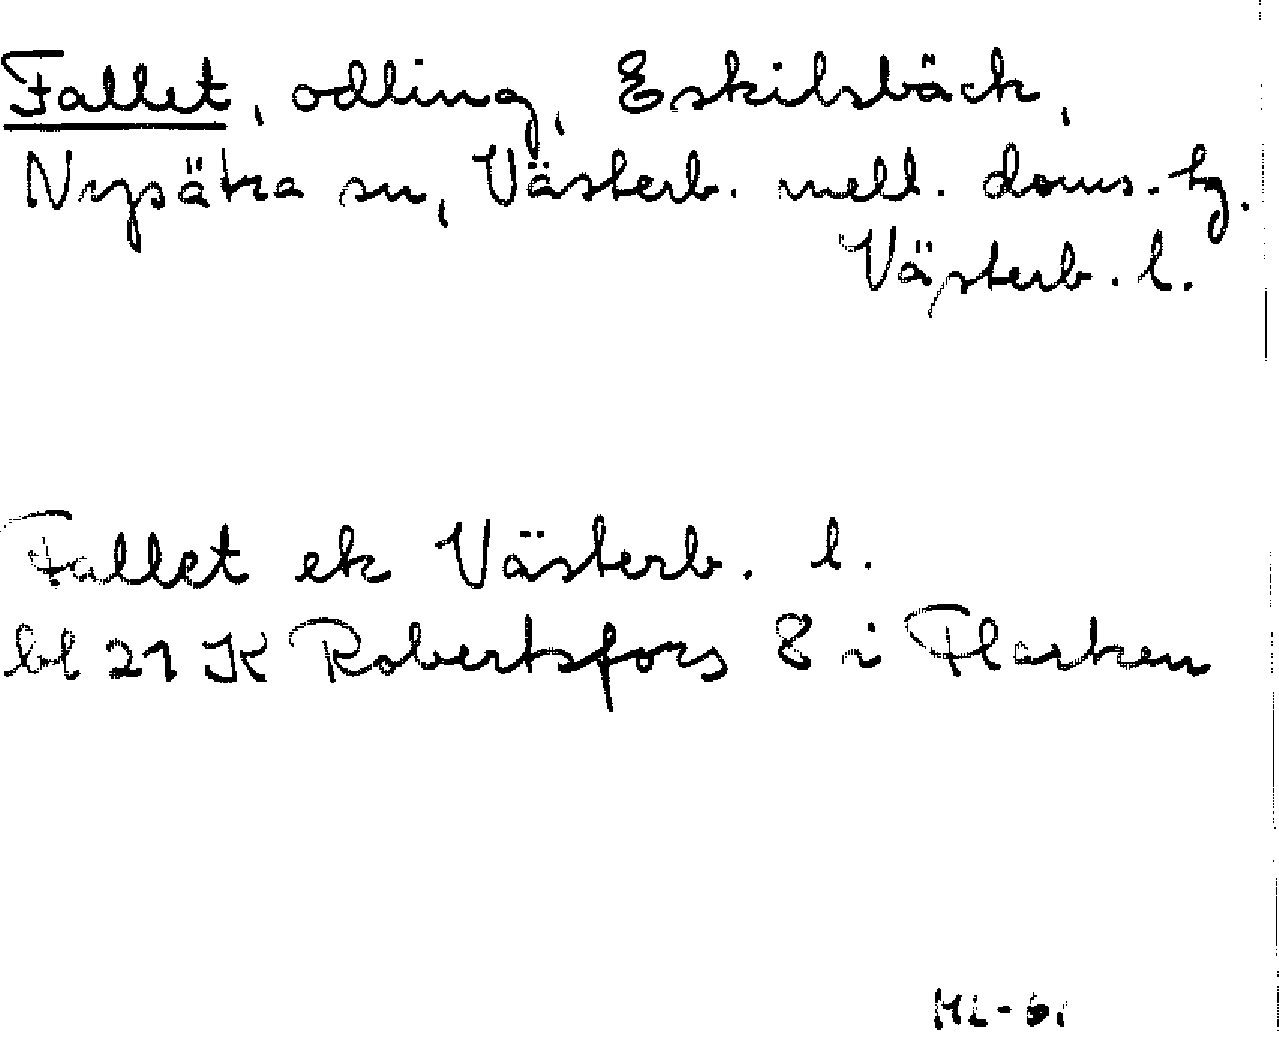 Fallet, odling, Eskilsbäck,
Nysätra sn, Västerb. mell. doms. tg.
Västerb. l.
Fallet ek Västerb. l.
bl 21 K Robertsfors 8 i Flarken